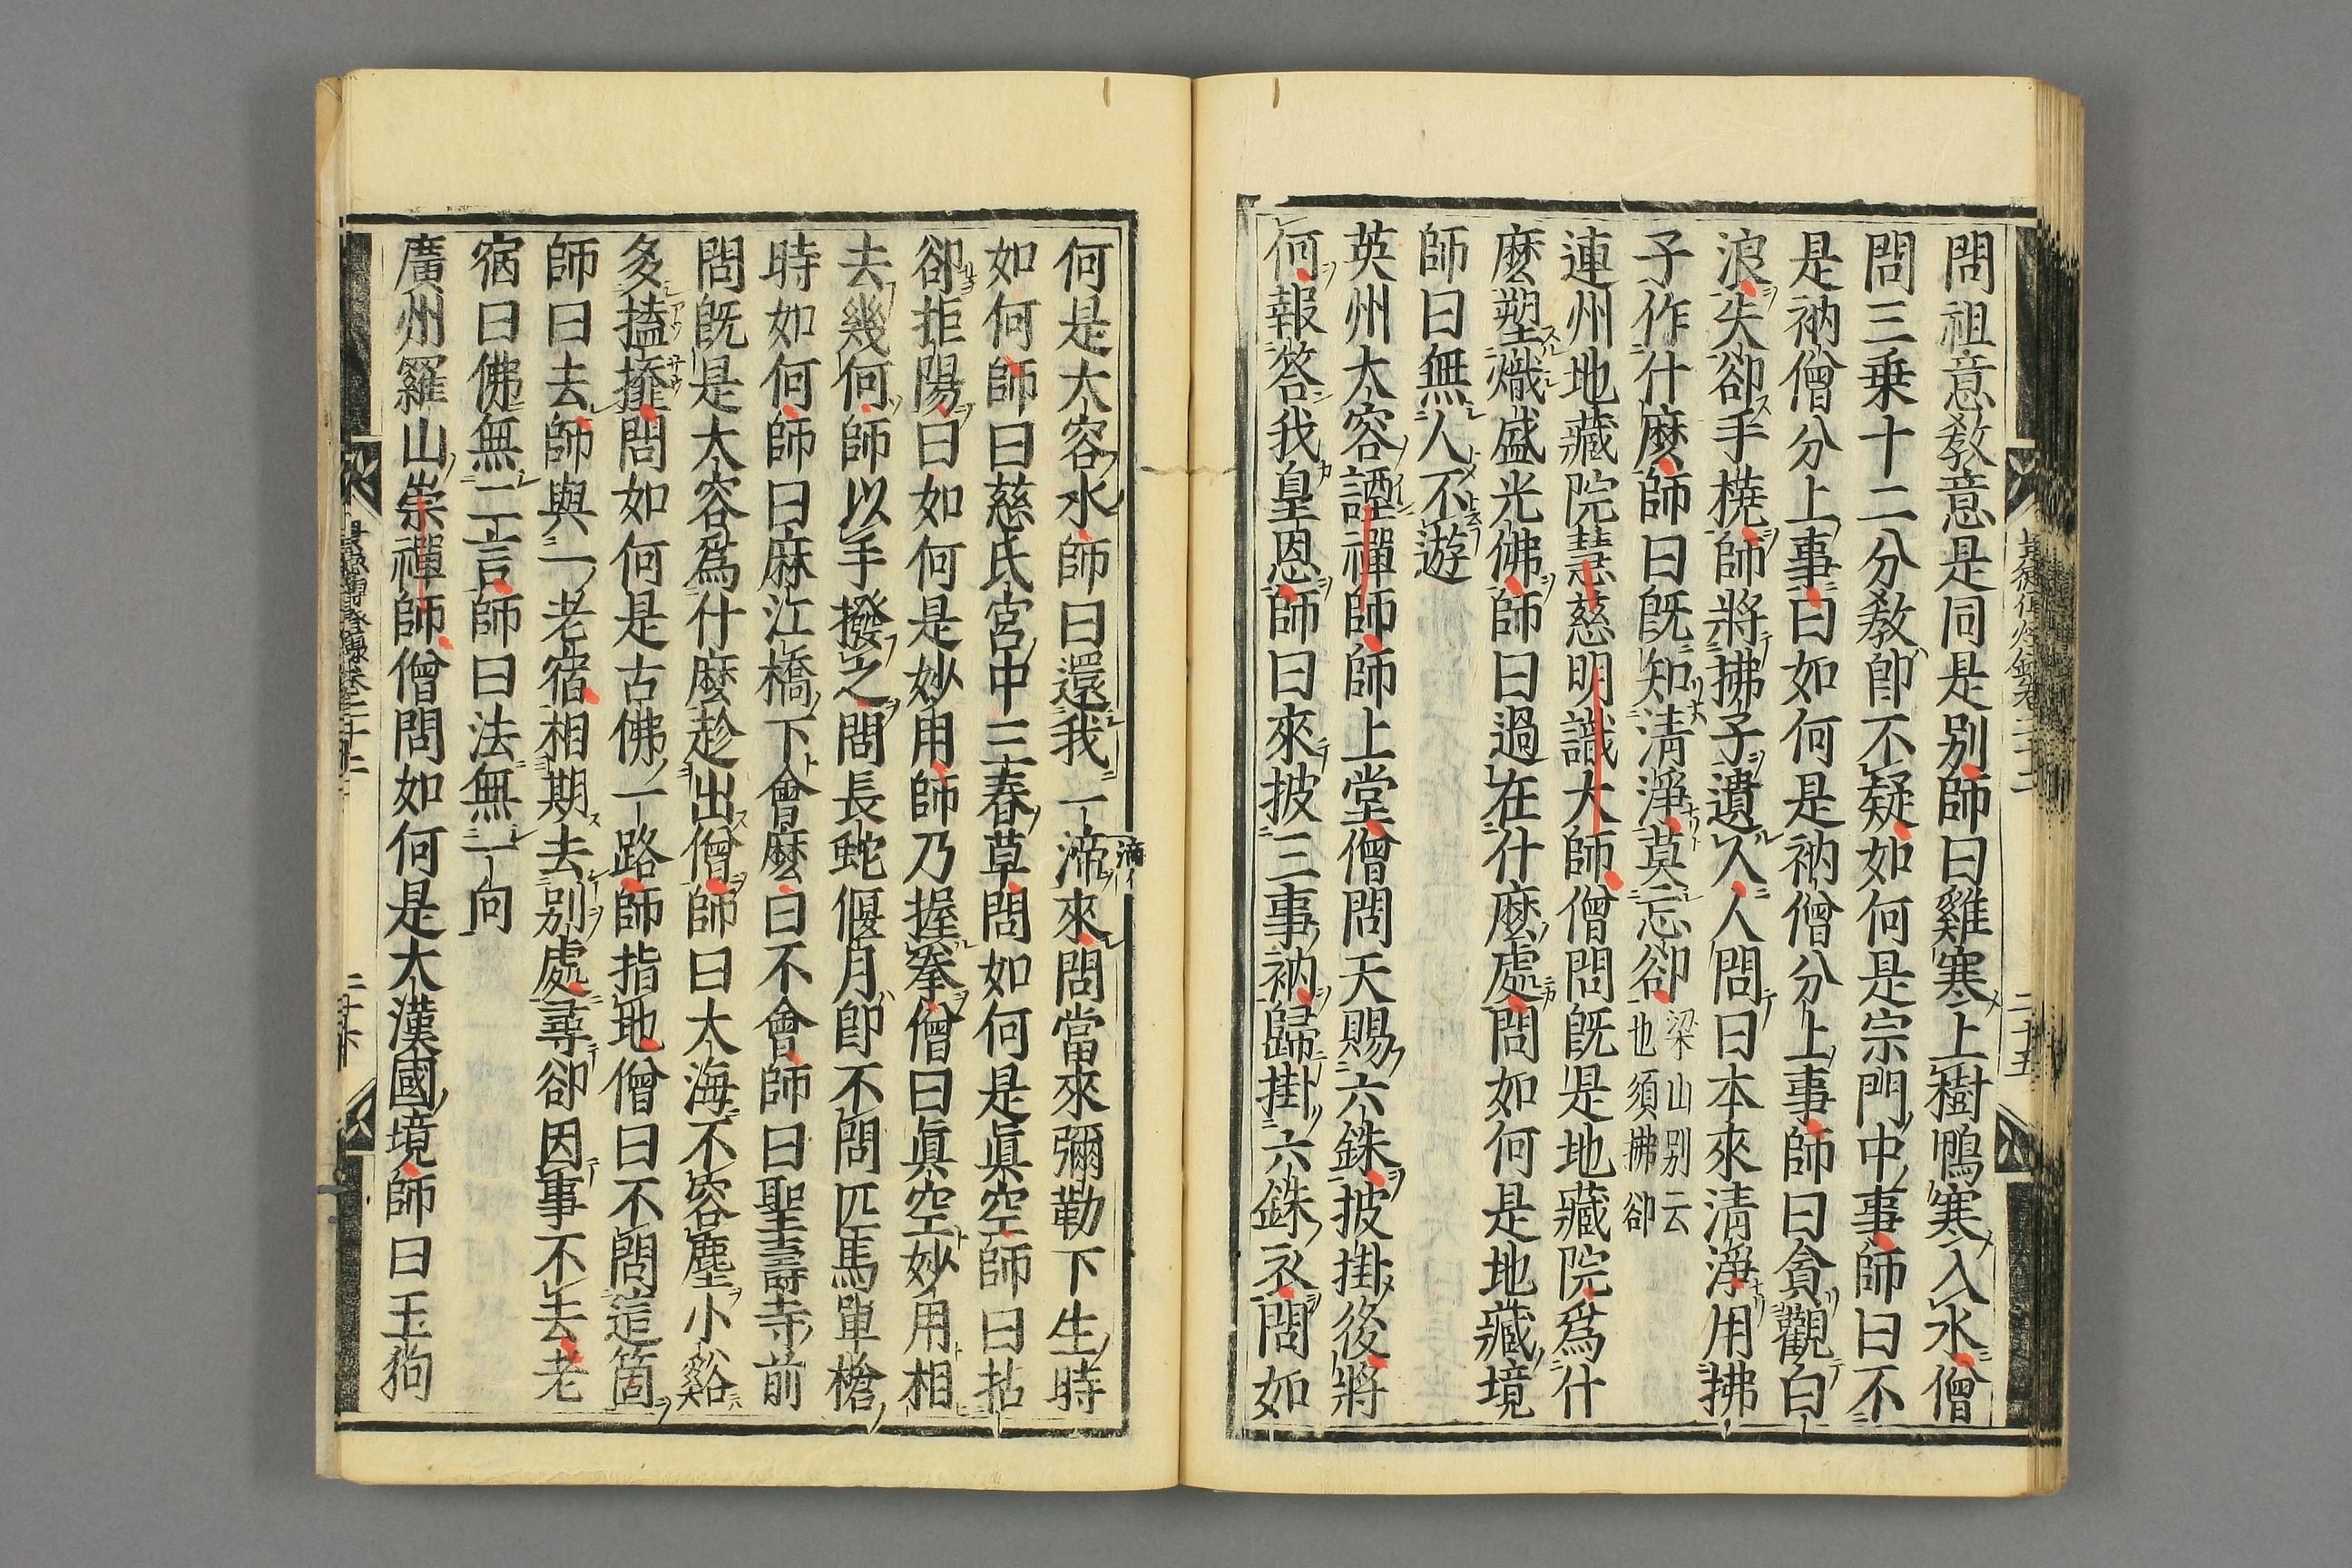 問祖意教意是同是别師曰雞寒上樹鴨寒入水僧
問三乗十二分教卽不疑如何是宗門中事師曰不
是衲僧分上事曰如何是衲僧分上事師曰貪觀白
浪失卻手橈師將拂子遺人人問曰本來清淨用拂
子作什麼師曰旣知清淨莫忘卻梁山别云也須拂卻
連州地藏院慧慈明識大師僧問旣是地藏院爲什
麼塑熾盛光佛師曰過在什麼處問如何是地藏境
師曰無人不遊
英州大容諲禪師師上堂僧問天賜六銖披掛後將
何報答我皇恩師曰來披三事衲歸掛六銖衣問如
何是大容水師曰還我一滴來問當來彌勒下生時
如何師曰慈氏宮中三春草問如何是眞空師曰拈
卻拒陽曰如何是妙用師乃握拳僧曰眞空妙用相
去幾何師以手撥之問長蛇偃月卽不問匹馬單槍
時如何師曰麻江橋下會麼曰不會師曰聖壽寺前
問旣是大容爲什麼趁出僧師曰大海不容塵小谿
多搕𢶍問如何是古佛一路師指地僧曰不問這箇
師曰去師與一老宿相期去别處尋卻因事不去老
宿曰佛無二言師曰法無一向
廣州羅山崇禪師僧問如何是大漢國境師曰玉狗